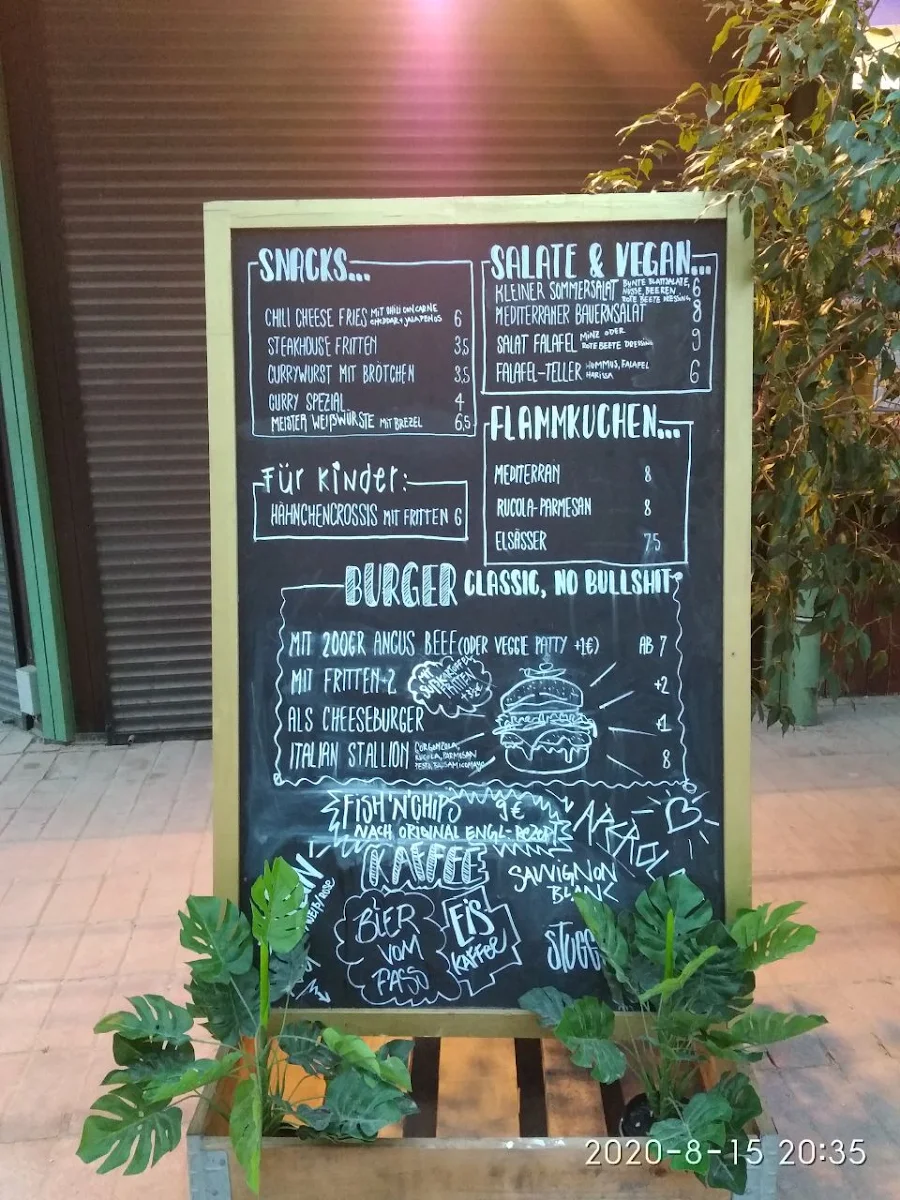 SNACKS...
CHILI CHEESE FRIES MIT CHILI CON CARNE 6
CHEDDAR + JALAPENOS
STEAKHOUSE FRITTEN 3,5
CURRYWURST MIT BRÖTCHEN 3,5
CURRY SPEZIAL 4
MEISTER WEIßWÜRSTE MIT BREZEL 6,5
Für Kinder:
HÄHNCHENCROSSIS MIT FRITTEN 6
SALATE & VEGAN...
KLEINER SOMMERSALAT BUNTE BLATTSALATE, 6
NÜSSE, BEEREN
ROTE BEETE DRESSING
MEDITERANER BAUERNSALAT 8
SALAT FALAFEL MINZ ODER 9
ROTE BEETE DRESSING
FALAFEL-TELLER HUMMUS, FALAFEL 6
HARISSA
FLAMMKUCHEN...
MEDITERRAN 8
RUCOLA-PARMESAN 8
ELSÄSSER 7,5
BURGER CLASSIC, NO BULLSHIT
MIT 200GR ANGUS BEEF (ODER VEGGIE PATTY +1€) AB 7
MIT FRITTEN+2 +2
MIT
SÜßKARTOFFEL
FRITTEN
ALS CHEESEBURGER +1
ITALIAN STALLION GORGONZOLA, 8
RUCOLA, PARMESAN
PESTO, BALSAMICOMAYO
FISH 'N' CHIPS 9€
NACH ORIGINAL ENGL- REZEPT
KAFFEE
SAUVIGNON
BLANC
WEIß/ROSE
BIER
VOM
FASS
EIS
KAFFEE
STUGG
2020-8-15 20:35